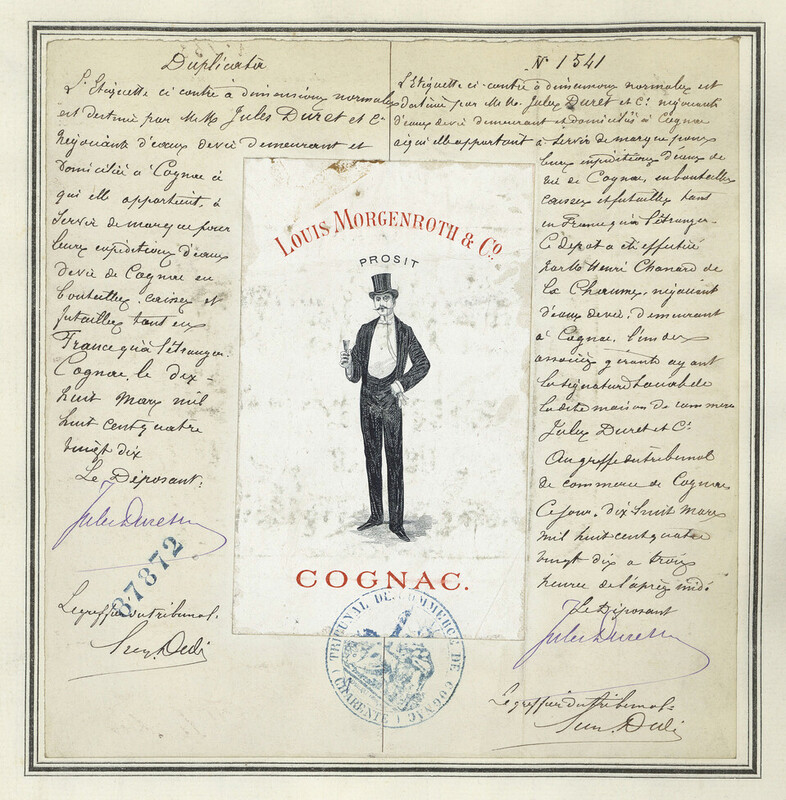 Duplicata
L'Etiquette ci contre à dimensions normales
est destinée par MM. Jules Duret et Cie
Négociants d'eaux de vie demeurant et
domiciliés à Cognac
qui elle appartient, à
servir de marque pour
leurs expéditions d'eaux
de vie de Cognac en
bouteilles, caisses et
futailles tant en
France qu'à l'étranger.
Cognac, le dix-
huit Mars mil
huit cent quatre
vingt dix
Le Déposant:
Jules Duret
37872
Le greffier du tribunal.
N° 1541
L'Etiquette ci-contre à dimensions normales est
destinée par MM. Jules Duret et Cie négociants
d'eaux de vie demeurant et domiciliés à Cognac
à qui elle appartient à servir de marque pour
leurs expéditions d'eaux de
vie de Cognac, en bouteilles
caisses et futailles tant
en France qu'à l'étranger.
Ce dépôt a été effectué
par Mr Henri Chanard de
la Chaume, négociant
d'eaux de vie, demeurant
à Cognac, l'un des
associés gérants ayant
la signature sociale de
la dite maison de commerce
Jules Duret et Cie
Au greffe du tribunal
de commerce de Cognac
Ce jour, dix huit Mars
mil huit cent quatre
vingt dix à trois
heures de l'après midi
Le Déposant
Jules Duret
Le greffier du tribunal.
LOUIS MORGENROTH & CO.
PROSIT
COGNAC.
TRIBUNAL DE COMMERCE DE COGNAC
(CHARENTE)